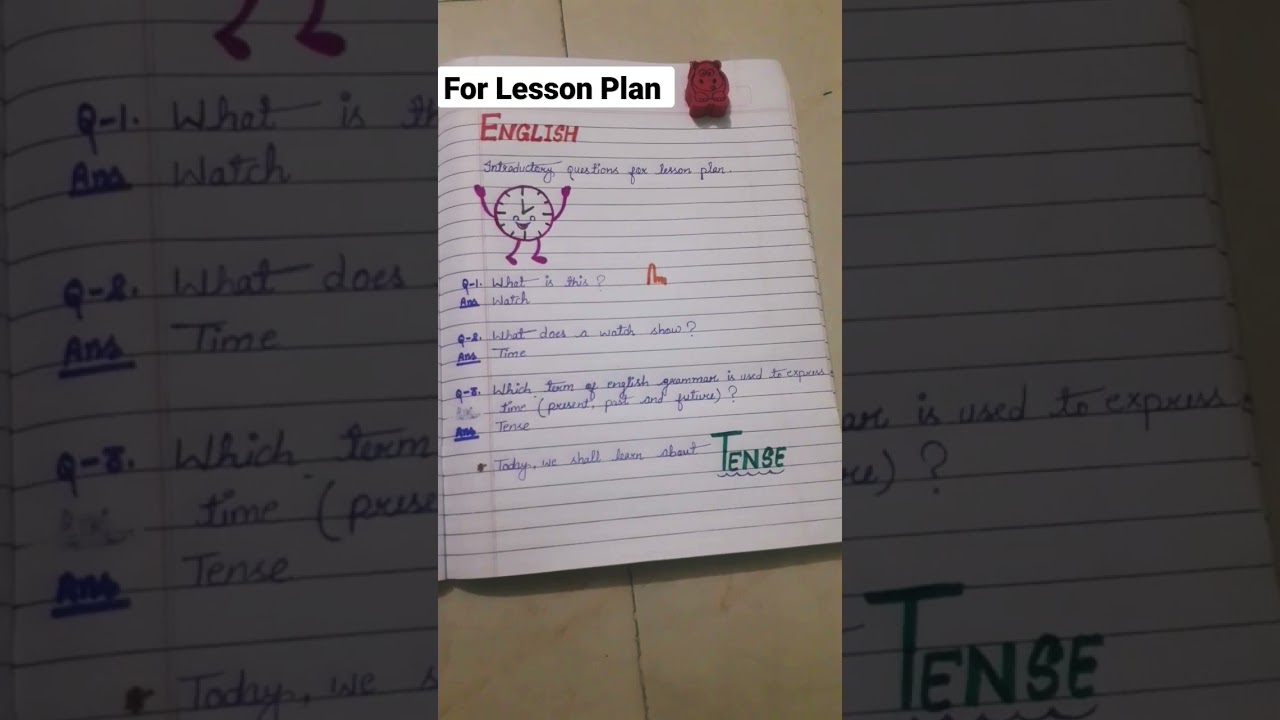 For Lesson Plan
ENGLISH
Introductory questions for lesson plan.
Q-1. What is this?
Ans Watch
Q-2. What does a watch show?
Ans Time
Q-3. Which term of english grammar is used to express
time (present, past and future)?
Ans Tense
Today, we shall learn about TENSE